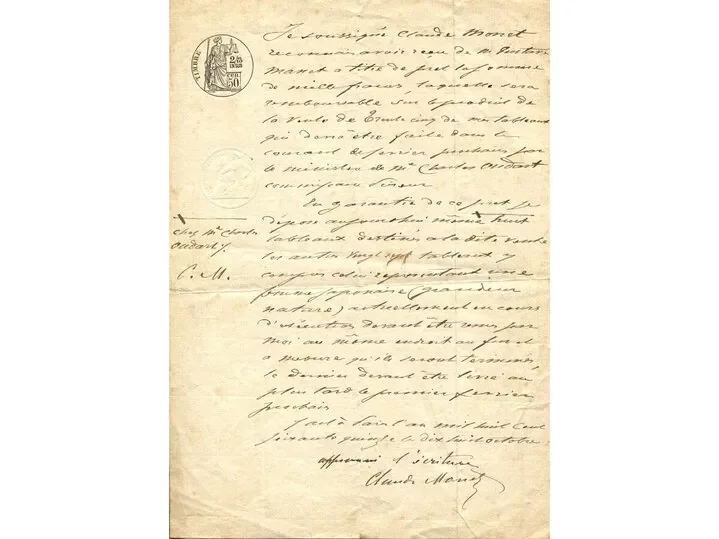 TIMBRE
2/10
EN SUS
50
CENT
Je soussigné Claude Monet
reconnais avoir reçu de M. Gustave
Manet à titre de prêt la somme
de mille francs, laquelle sera
remboursable sur le produit de
la vente de Trente cinq de mes tableaux
qui devra être faite dans le
courant de fevrier prochain par
le ministère de Me Charles Oudart
commissaire priseur
En garantie de ce prêt je
dépose aujourd'hui même huit
tableaux destinés à la dite vente
les autres vingt sept tableaux y
compris celui représentant une
femme japonaise (grandeur
nature) actuellement en cours
d'exécution devant être remis par
moi au même endroit au fur et
a mesure qu'ils seront terminés
le dernier devant être livré au
plus tard le premier fevrier
prochain
fait à Paris l'an mil huit cent
soixante quinze le dix huit octobre
approuvé l'écriture
Claude Monet
chez Me Charles
Oudart
C. M.